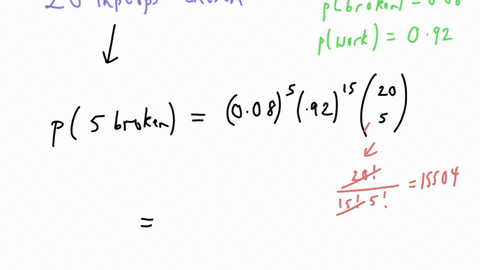 20 laptops chosen
p(broken) = 0.08
p(work) = 0.92
p(5 broken) = (0.08)^5 (.92)^15 (20 5)
20! / 15! 5! = 15504
=